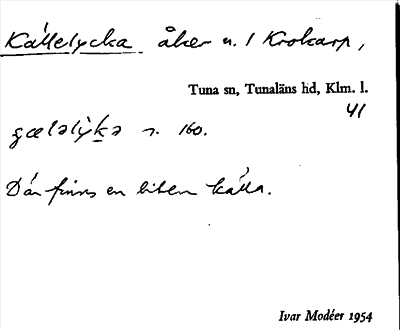 Källelycka åker n. 1 Krokarp,
Tuna sn, Tunaläns hd, Klm. l.
41
r. 160.
Där finns en liten källa.
Ivar Modéer 1954